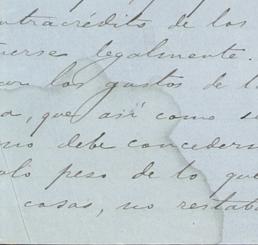 ntracrédito de los
nerse legalmente.
con los gastos de l
a, que así como s
no debe conceder
olo peso de lo que
cosas, no restab